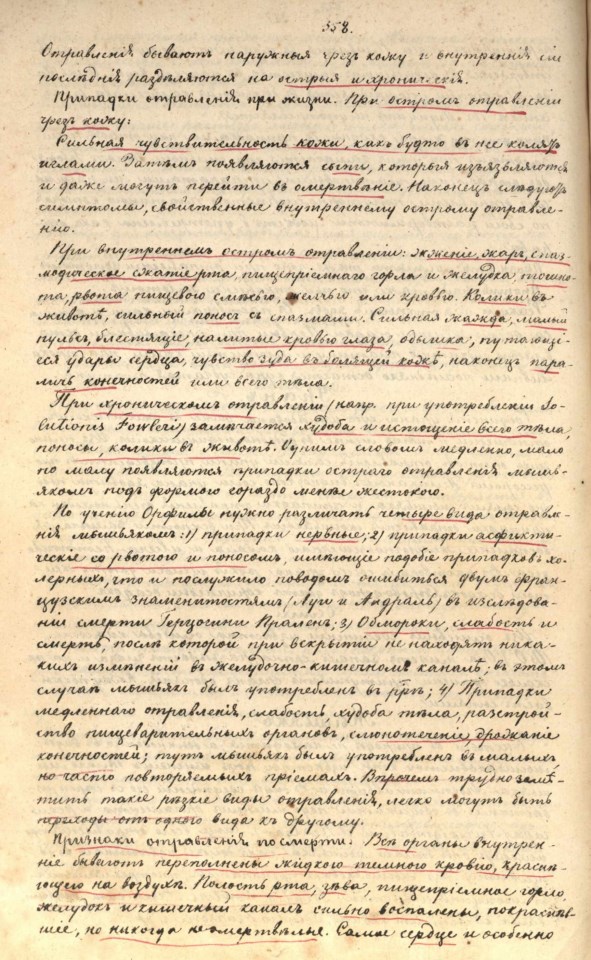 358.
Отравленія бываютъ наружныя чрезъ кожу и внутреннія сіи
послѣднія раздѣляются на острыя и хроническія.
Припадки отравленія при жизни. При остромъ отравленіи
чрезъ кожу:
Сильная чувствительность кожи, какъ будто въ нее колятъ
иглами. Затѣмъ появляются сыпи, которыя изъязвляются
и даже могутъ перейти въ омертвѣніе. Наконецъ слѣдуютъ
симптомы, свойственные внутреннему острому отравле-
нію.
При внутреннемъ остромъ отравленіи: жженіе, жаръ, спаз-
модическое сжатіе рта, пищепріемнаго горла и желудка, тошно-
та, рвота пищевого слизью, желчью или кровью. Колики въ
животѣ, сильный поносъ съ спазмами. Сильная жажда, малый
пульсъ, блестящіе, налитые кровью глаза, одышка, путающі-
еся удары сердца, чувство зуда въ болящей кожѣ, наконецъ пара-
личъ конечностей или всего тѣла.
При хроническомъ отравленіи (напр. при употребленіи So-
lutionis Fowleri) замѣчается худоба и истощеніе всего тѣла,
поносы, колики въ животѣ. Однимъ словомъ медленно, мало
по малу появляются припадки остраго отравленія мышь-
якомъ подъ формою гораздо менѣе жестокою.
По ученію Орфилы нужно различать четыре вида отравле-
нія мышьякомъ: 1) припадки нервные; 2) припадки асфикти-
ческіе со рвотою и поносомъ, имѣющіе подобіе припадковъ хо-
лерныхъ, что и послужило поводомъ ошибиться двумъ фран-
цузскимъ знаменитостямъ (Луи и Андраль) въ изслѣдова-
ніи смерти Герцогини Пралень; 3) Обмороки, слабость и
смерть, послѣ которой при вскрытіи не находятъ ника-
кихъ измѣненій въ желудочно-кишечномъ каналѣ; въ этомъ
случаѣ мышьякъ былъ употребленъ въ 4) Припадки
медленнаго отравленія, слабость, худоба тѣла, разстрой-
ство пищеварительныхъ органовъ, слюнотеченіе, дрожаніе
конечностей; тутъ мышьякъ былъ употребленъ въ малыхъ
но часто повторяемыхъ пріемахъ. Впрочемъ трудно замѣ-
тить такіе рѣзкіе виды отравленія, легко могутъ быть
переходы отъ одного вида къ другому.
Признаки отравленія по смерти. Всѣ органы внутрен-
ніе бываютъ переполнены жидкою темною кровію, краснѣ-
ющею на воздухѣ. Полость рта, зѣва, пищепріемное горло,
желудокъ и кишечный каналъ сильно воспалены, покраснѣв-
шіе, но никогда не омертвѣлые. Самое сердце и особенно